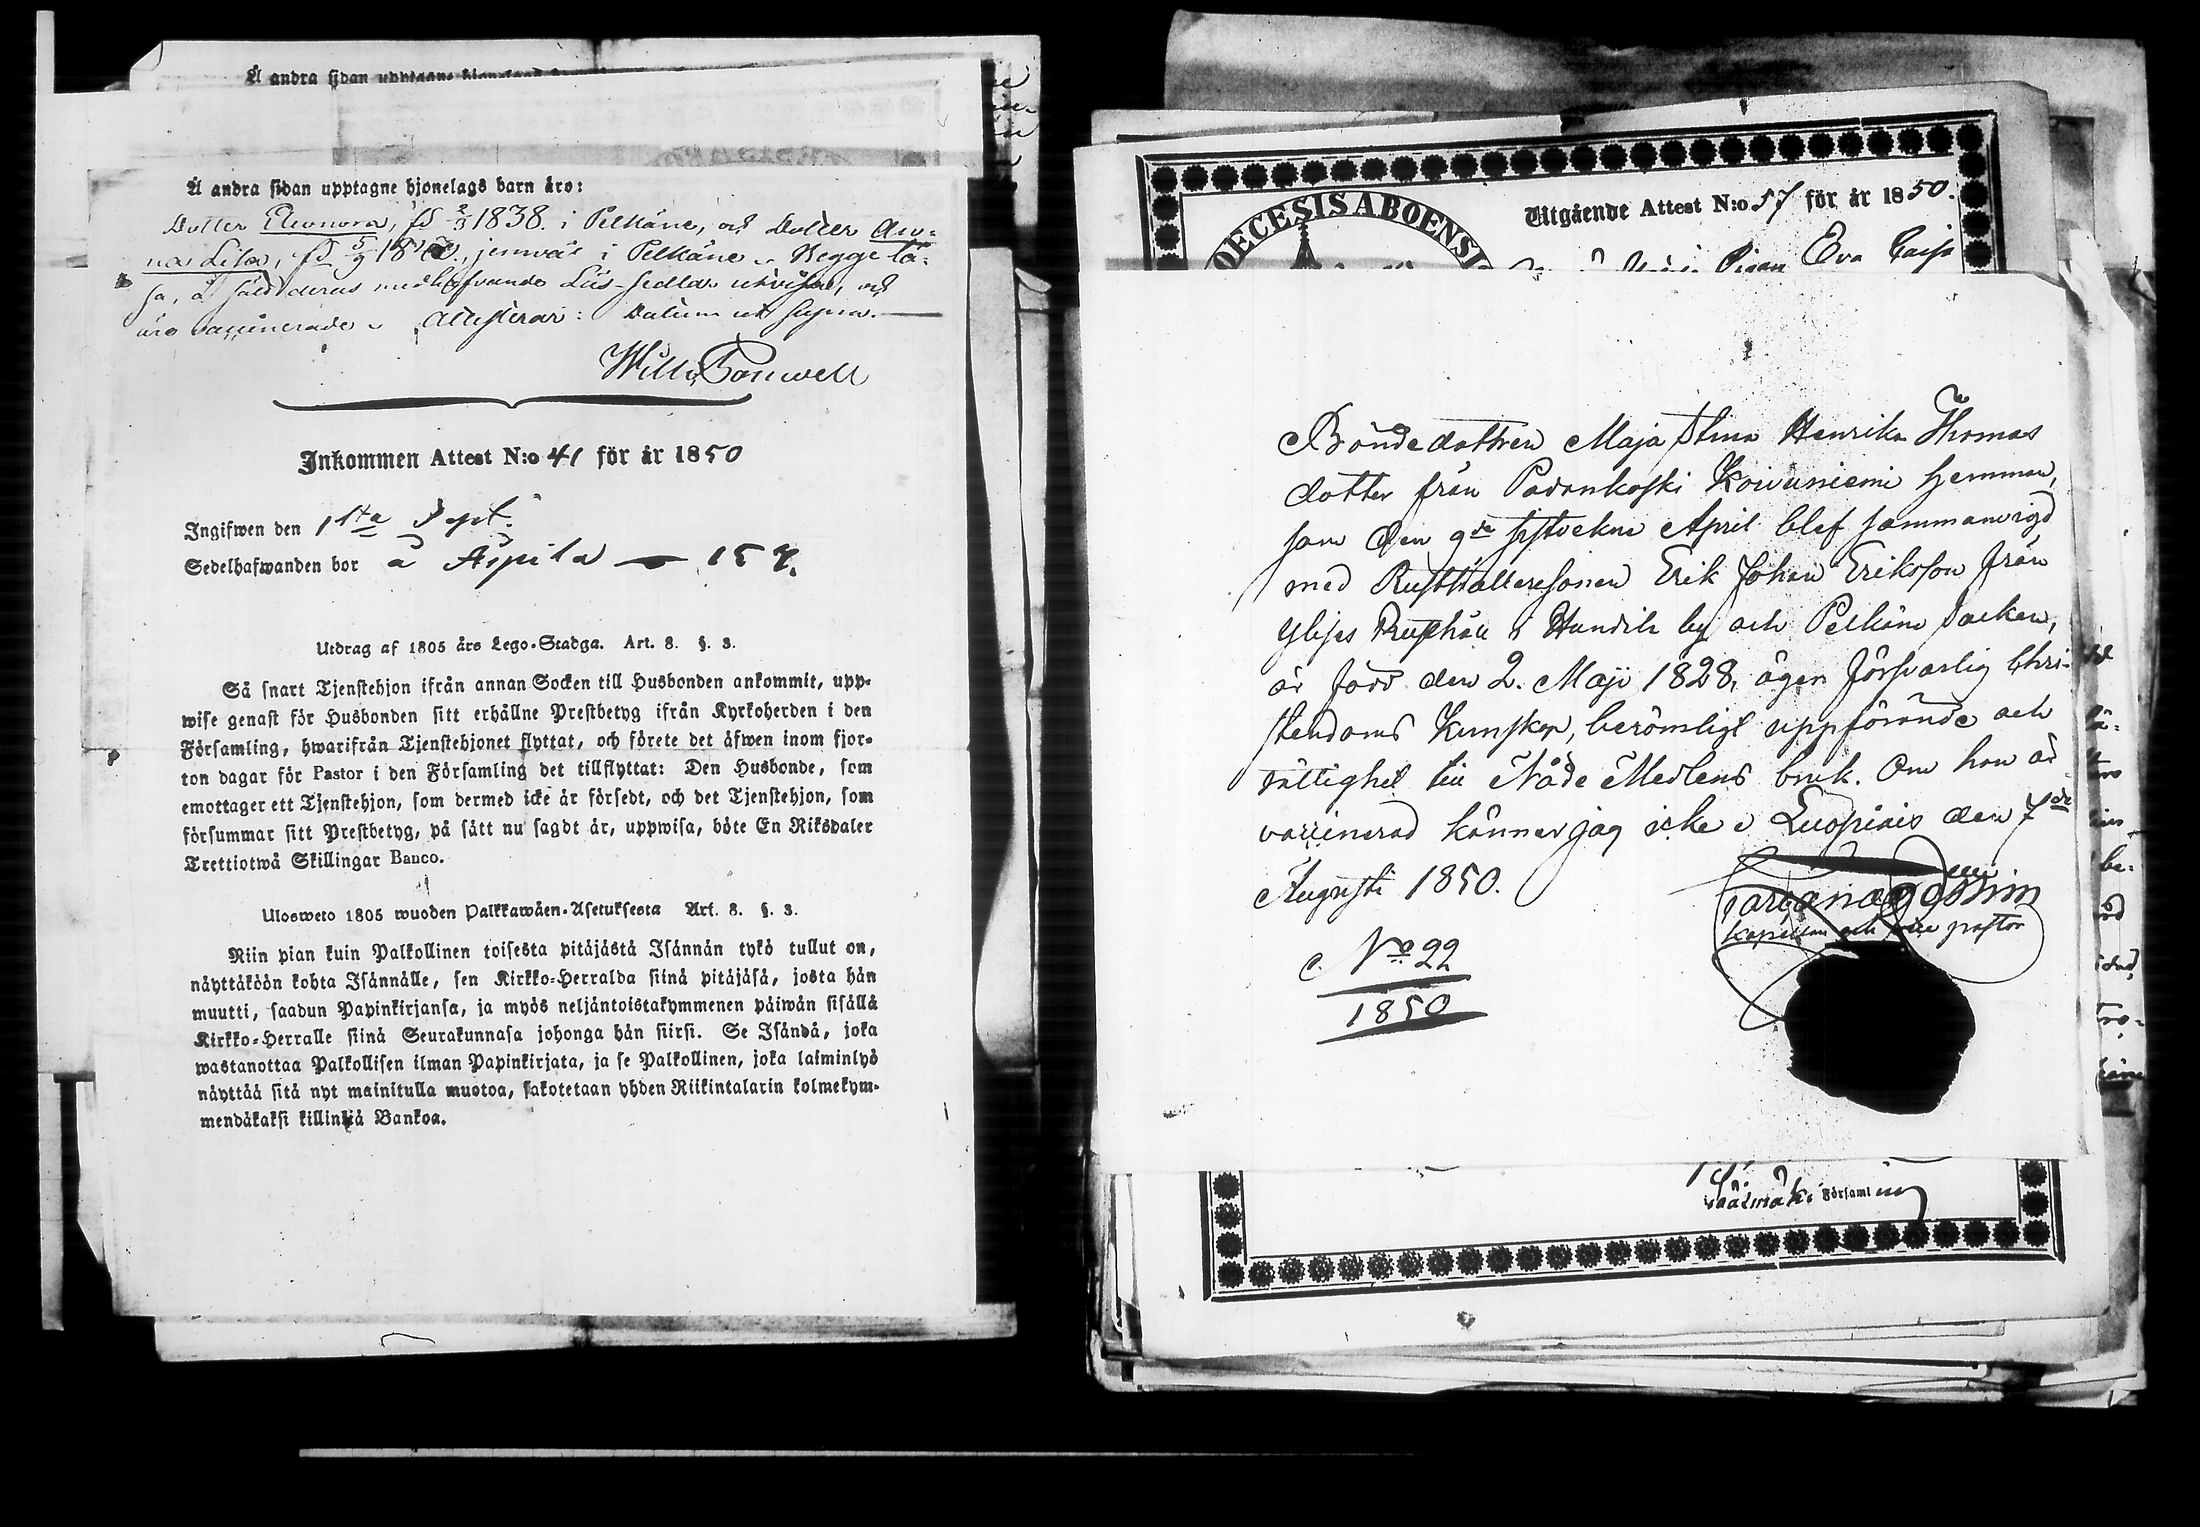 Å andra sidan upptagne hjonelags barn äro:
Dotter Eleonora, fd 2/3 1838. i Pelkäne, och Dotter An-
na Lisa, fd 5/9 18, jemväl i Pelkäne. Begge lä-
sa, medhafvande Läs-sedlar utvisa, och
äro vaccinerade. Attesterar: Datum ut supra.
Inkommen Attest N:o 41 för år 1850
Ingifwen den 1sta Sept.
Sedelhafwanden bor å Äipilä — 157.
Utdrag af 1805 års Lego-Stadga. Art. 8. §. 3.
Så snart Tjenstehjon ifrån annan Socken till Husbonden ankommit, upp-
wise genast för Husbonden sitt erhållne Prestbetyg ifrån Kyrkoherden i den
Församling, hwarifrån Tjenstehjonet flyttat, och förete det äfwen inom fjor-
ton dagar för Pastor i den Församling det tillflyttat: Den Husbonde, som
emottager ett Tjenstehjon, som dermed icke är försedt, och det Tjenstehjon, som
försummar sitt Prestbetyg, på sätt nu sagdt är, uppwisa, böte En Riksdaler
Trettiotwå Skillingar Banco.
Ulosweto 1805 wuoden Palkkawäen-Asetuksesta Art. 8. §. 3.
Niin pian kuin Palkollinen toisesta pitäjästä Isännän tykö tullut on,
näyttäköön kohta Isännälle, sen Kirkko-Herralda siinä pitäjäsä, josta hän
muutti, saadun Papinkirjansa, ja myös neljäntoistakymmenen päiwän sisällä
Kirkko-Herralle siinä Seurakunnasa johonga hän siirsi. Se Isändä, joka
wastanottaa Palkollisen ilman Papinkirjata, ja se Palkollinen, joka laiminlyö
näyttää sitä nyt mainitulla muotoa, sakotetaan yhden Riikintalarin kolmekym-
mendäkaksi killinkiä Bankoa.
DIOECESIS ABOENSI
Utgående Attest N:o 57 för år 1850.
Pigan Eva Caisa
Bondedottren Maja Stina Henrika Thomas
dotter från Padankoski Koivuniemi hemman,
som den 9de sistvekne April blef sammanvigd
med Rusthållaresonen Erik Johan Eriksson från
Ylijes Rusthåll i Huudila by och Pelkäne Socken,
är född den 2. Maji 1828, äger försvarlig Chri-
stendoms Kunskap, berömligt uppförande och
rättighet till Nåde Medlens bruk. Om hon är
vaccinerad känner jag icke. Luopiois den 7de
Augusti 1850.
kapellan och vice pastor
No 22
1850
Församling